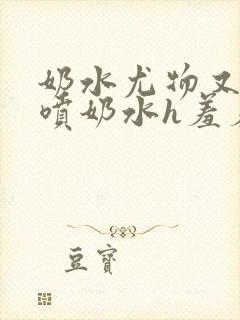 奶水尤物又
喷奶水h羞
豆寶